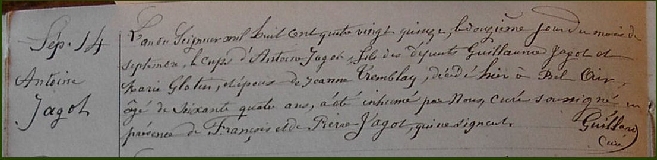 Sép. 14
Antoine
Jagot
L'an du Seigneur mil huit cent quatre vingt quinze, le douzième jour du mois de
septembre, le corps d'Antoine Jagot, fils des défunts Guillaume Jagot et
Marie Glotin, époux de Jeanne Tremblay, décédé hier à Bel Air,
âgé de soixante quatre ans, a été inhumé par Nous, curé soussigné en
présence de François et de Pierre Jagot, qui ne signent.
Guillard
Curé